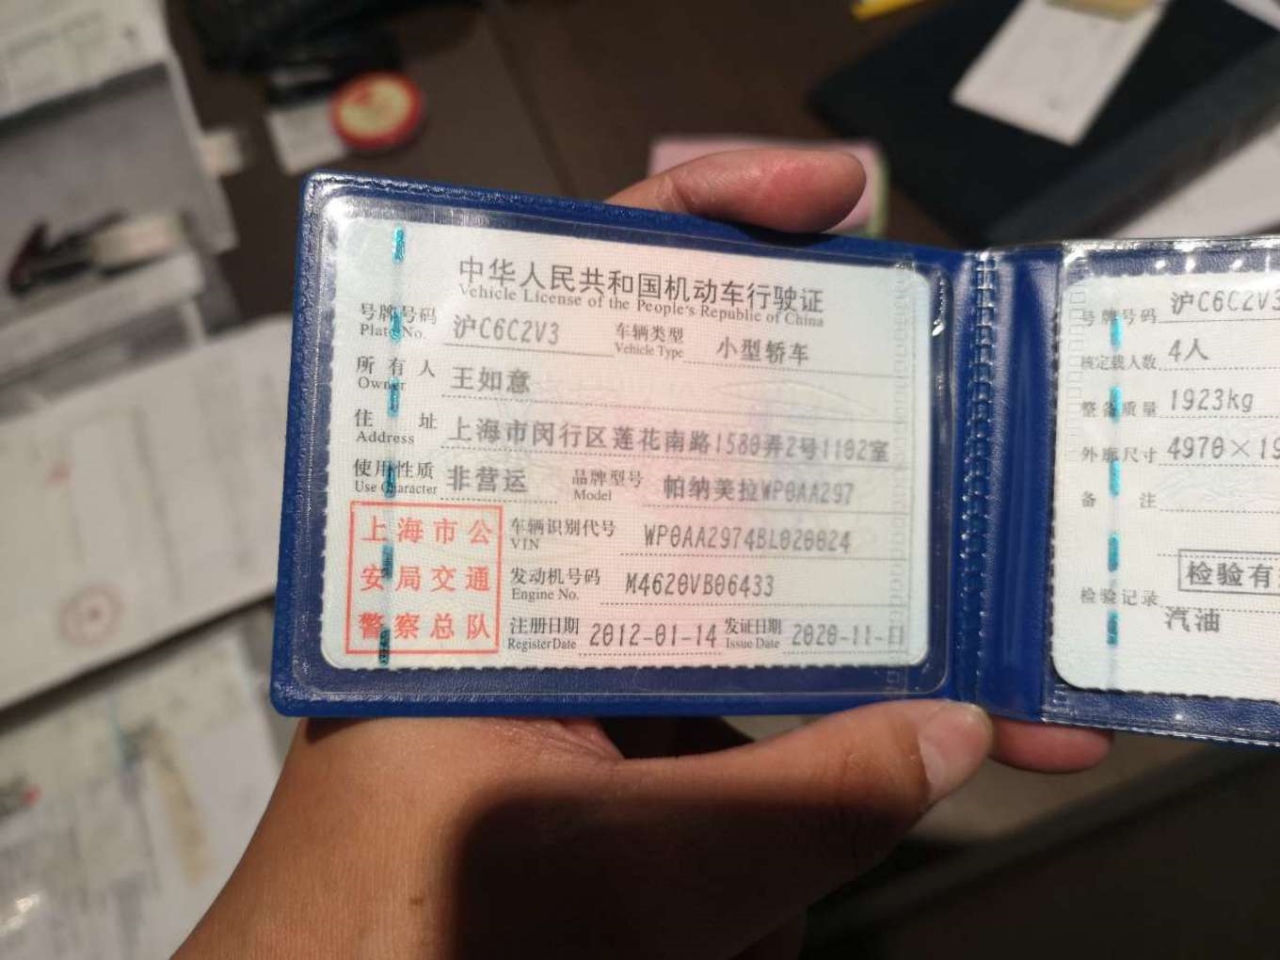 中华人民共和国机动车行驶证
Vehicle License of the People's Republic of China
号牌号码 沪C6C2V3 车辆类型 小型轿车
Plate No. Vehicle Type
所有人 王如意
Owner
住址 上海市闵行区莲花南路1580弄2号1102室
Address
使用性质 非营运 品牌型号 帕纳美拉WP0AA297
Use Character Model
上海市公
安局交通
警察总队
车辆识别代号 WP0AA2974BL020024
VIN
发动机号码 M4620VB06433
Engine No.
注册日期 2012-01-14 发证日期 2020-11-
Register Date Issue Date
号牌号码 沪C6C2V3
核定载人数 4人
整备质量 1923kg
外廓尺寸 4970×19
备注
检验有
检验记录
汽油